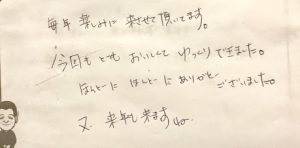 毎年 楽しみに 来させて頂いてます。
今回も とても おいしくて ゆっくり できました。
ほんとーに ほんとーに ありがとー ございました。
又、来年も来ますね。